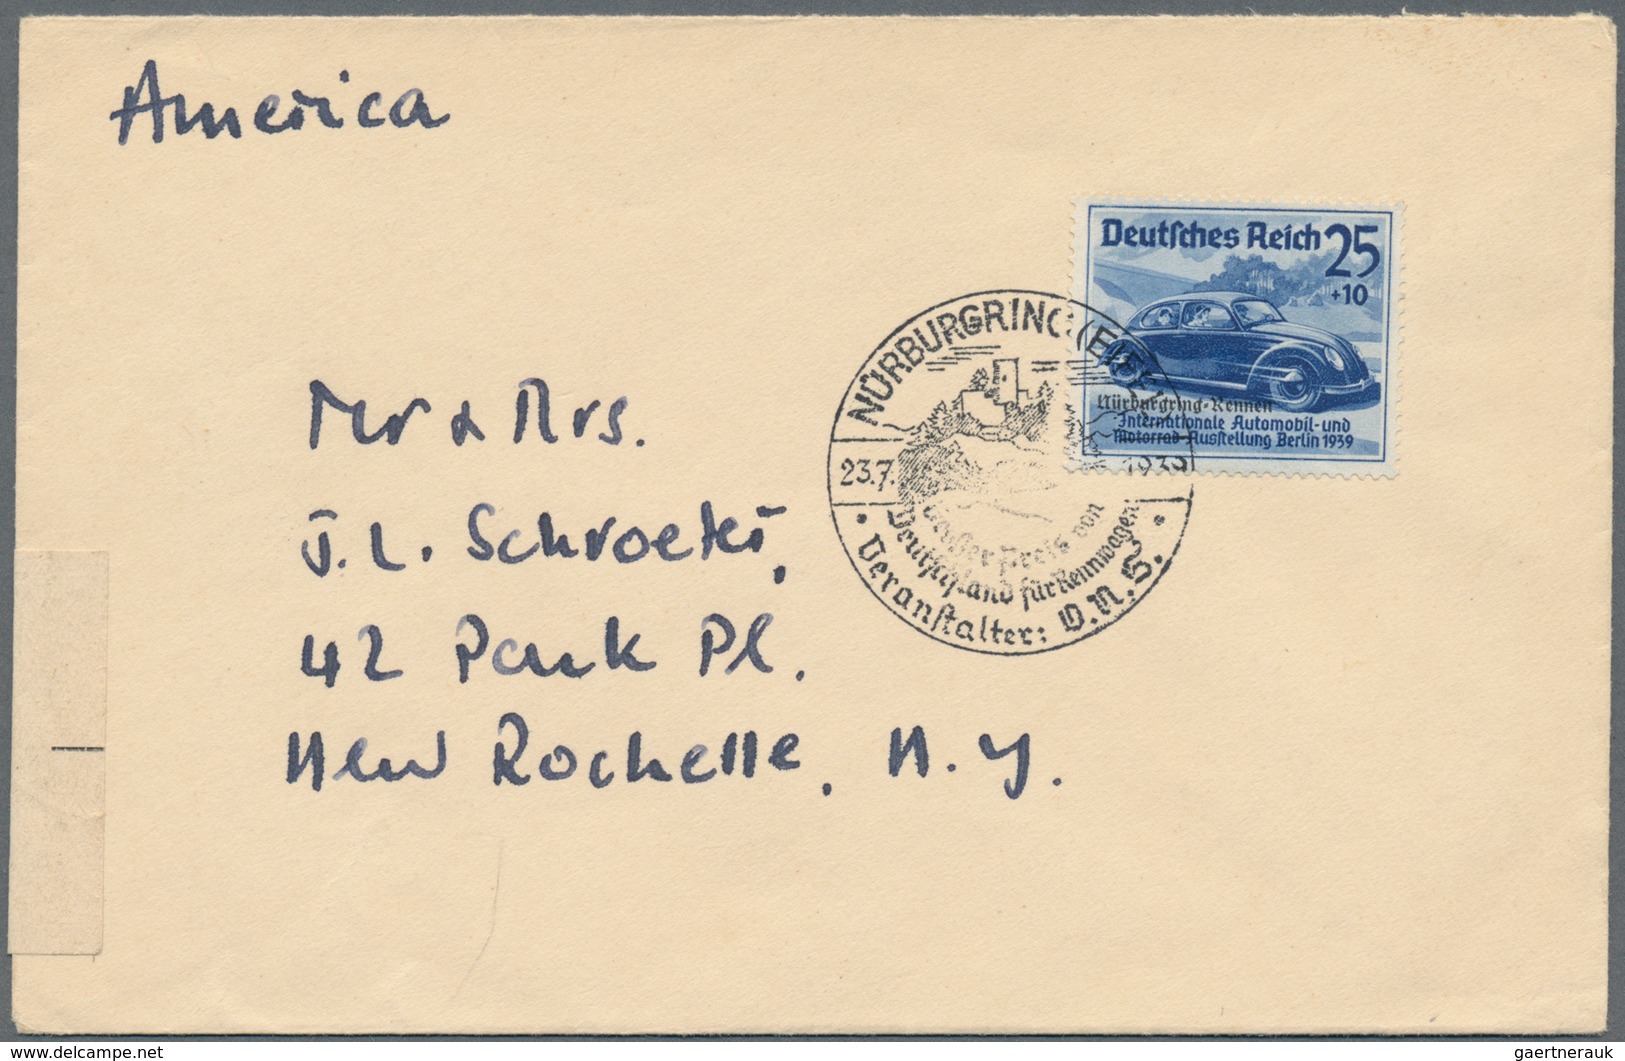 America
Deutsches Reich 25
+10
Nürburgring-Rennen
Internationale Automobil-und
Motorrad-Ausstellung Berlin 1939
NÜRBURGRING (EIFEL)
23.7. 1939
Großer Preis von
Deutschland für Rennwagen
Veranstalter: O.N.S.
Mr & Mrs.
J. L. Schroeter,
42 Park Pl.
New Rochelle, N. Y.
www.delcampe.net
gaertnerauk